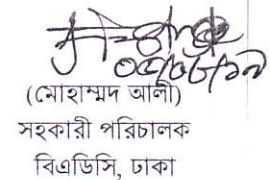 (মোহাম্মদ আলী)
সহকারী পরিচালক
বিএডিসি, ঢাকা